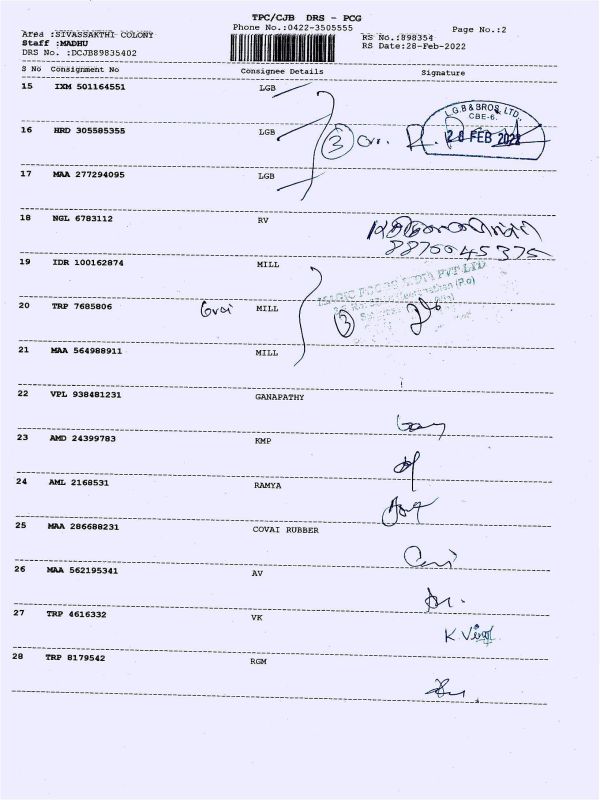 TPC/CJB DRS - PCG
Phone No.:0422-3505555
Page No.:2
Area :SIVASSAKTHI COLONY
RS No.:898354
Staff :MADHU
RS Date:28-Feb-2022
DRS No. :DCJB89835402
S No Consignment No Consignee Details Signature
15 IXM 501164551 LGB
16 HRD 305585355 LGB
3
L.G.B & BROS. LTD.,
CBE-6.
28 FEB 2022
17 MAA 277294095 LGB
18 NGL 6783112 RV
8870045375
19 IDR 100162874 MILL
INDIA PVT LTD
20 TRP 7685806 MILL
3
21 MAA 564988911 MILL
22 VPL 938481231 GANAPATHY
23 AMD 24399783 KMP
24 AML 2168531 RAMYA
25 MAA 286688231 COVAI RUBBER
26 MAA 562195341 AV
27 TRP 4616332 VK
28 TRP 8179542 RGM